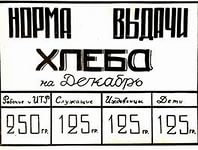 НОРМА ВЫДАЧИ
ХЛЕБА
на Декабрь
Рабочие и ИТР Служащие Иждивенцы Дети
250 ГР. 125 ГР. 125 ГР. 125 ГР.